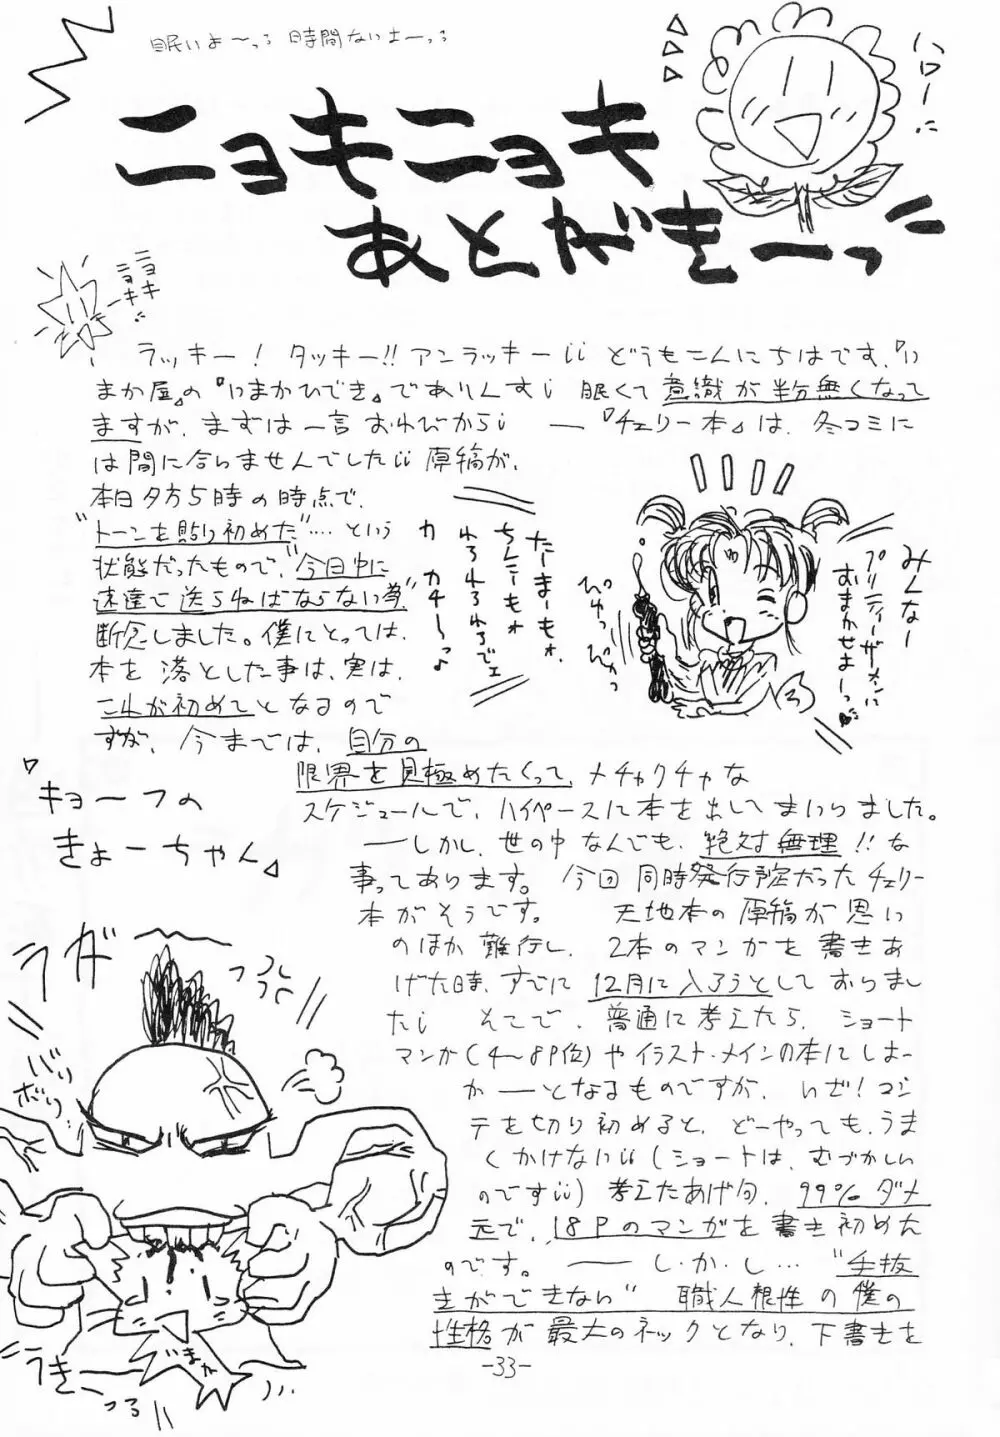 眠いよ〜っ 時間ないよーっ
ハロー
ニョキニョキ
あとがきーっ
ニョキ
ニョキ
ラッキー! タッキー!! アンラッキーii どうもこんにちはです、『い
まか屋』の『いまかひでき』でありんすi 眠くて意識が半分無くなって
ますが、まずは一言おわびからi ―『チェリー本』は、冬コミに
は間に合いませんでしたii 原稿が、
本日夕方5時の時点で、
"トーンを貼り初めた"…という
状態だったもので、"今日中に
速達で送らねばならない為"
断念しました。僕にとっては、
本を落とした事は、実は、
これが初めてとなるので
すが、今までは、自分の
限界を見極めたくって、メチャクチャな
スケジュールで、ハイペースに本を出してまいりました。
―しかし、世の中なんでも、絶対無理!!な
事ってあります。今回同時発行予定だったチェリー
本がそうです。 天地本の原稿が思い
のほか難行し、2本のマンガを書きあ
げた時、すでに12月に入ろうとしておりまし
たi そこで、普通に考えたら、ショート
マンガ(4〜8P位)やイラスト・メインの本にしよー
か―となるものですが、いざ!コン
テを切り初めると、どーやっても、うま
くかけないii(ショートは、むづかしい
のですii)考えたあげ句、99%ダメ
元で、18Pのマンガを書き初めた
のです。―し・か・し…"手抜
きができない"職人根性の僕の
性格が最大のネックとなり、下書きを
みんなー
プリティーザーメンに
おまかせよーっ
たーまーもォ、
ちんこーもォ
われわれわれでェ
カ カチ〜っ♪
ぴゅっ
ぴゅっ
『キョーフの
きょーちゃん』
うガ〜
っプルプル
バリ
ボリ
いまか
うきーっ
-33-